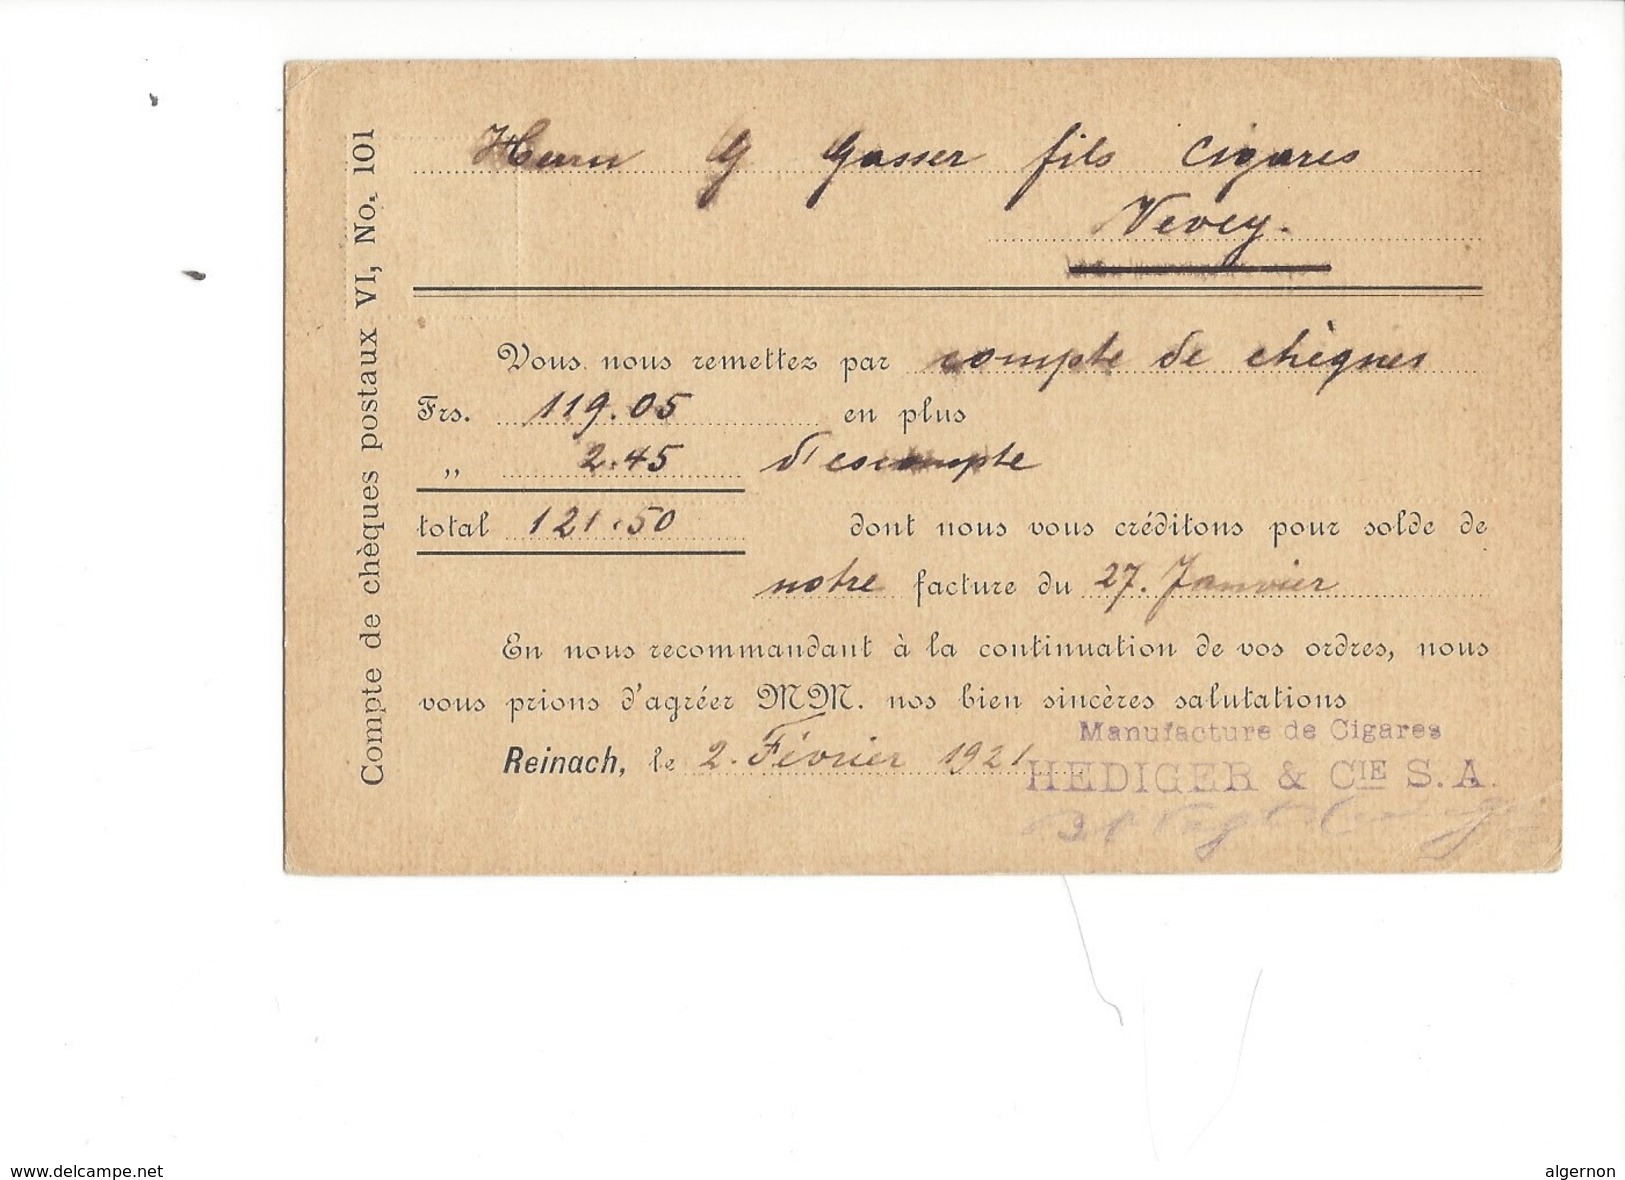 Compte de chèques postaux VI, No. 101
Herrn G Gasser fils Cigares
Vevey.
Vous nous remettez par compte de chèques
Frs. 119.05 en plus
„ 2.45 d'escompte
total 121.50 dont nous vous créditons pour solde de
notre facture du 27. Janvier
En nous recommandant à la continuation de vos ordres, nous
vous prions d'agréer MM. nos bien sincères salutations
Manufacture de Cigares
Reinach, le 2. Février 1921
HEDIGER & CIE S.A.
www.delcampe.net
algernon